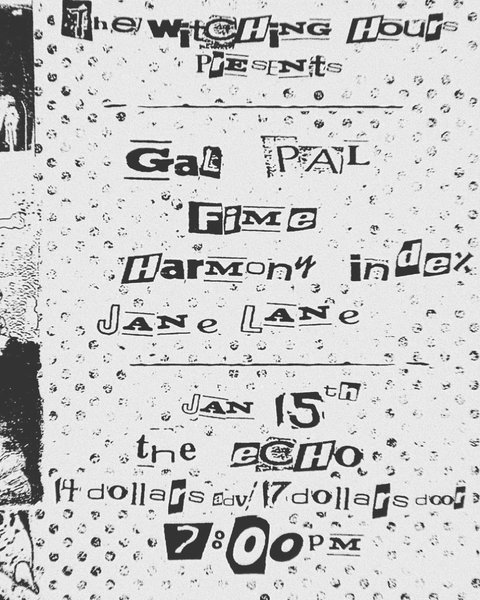 The Witching Hours
Presents
Gal PAL
Fime
Harmony index
Jane Lane
Jan 15th
the echo
14 dollars adv/17 dollars door
7:00PM